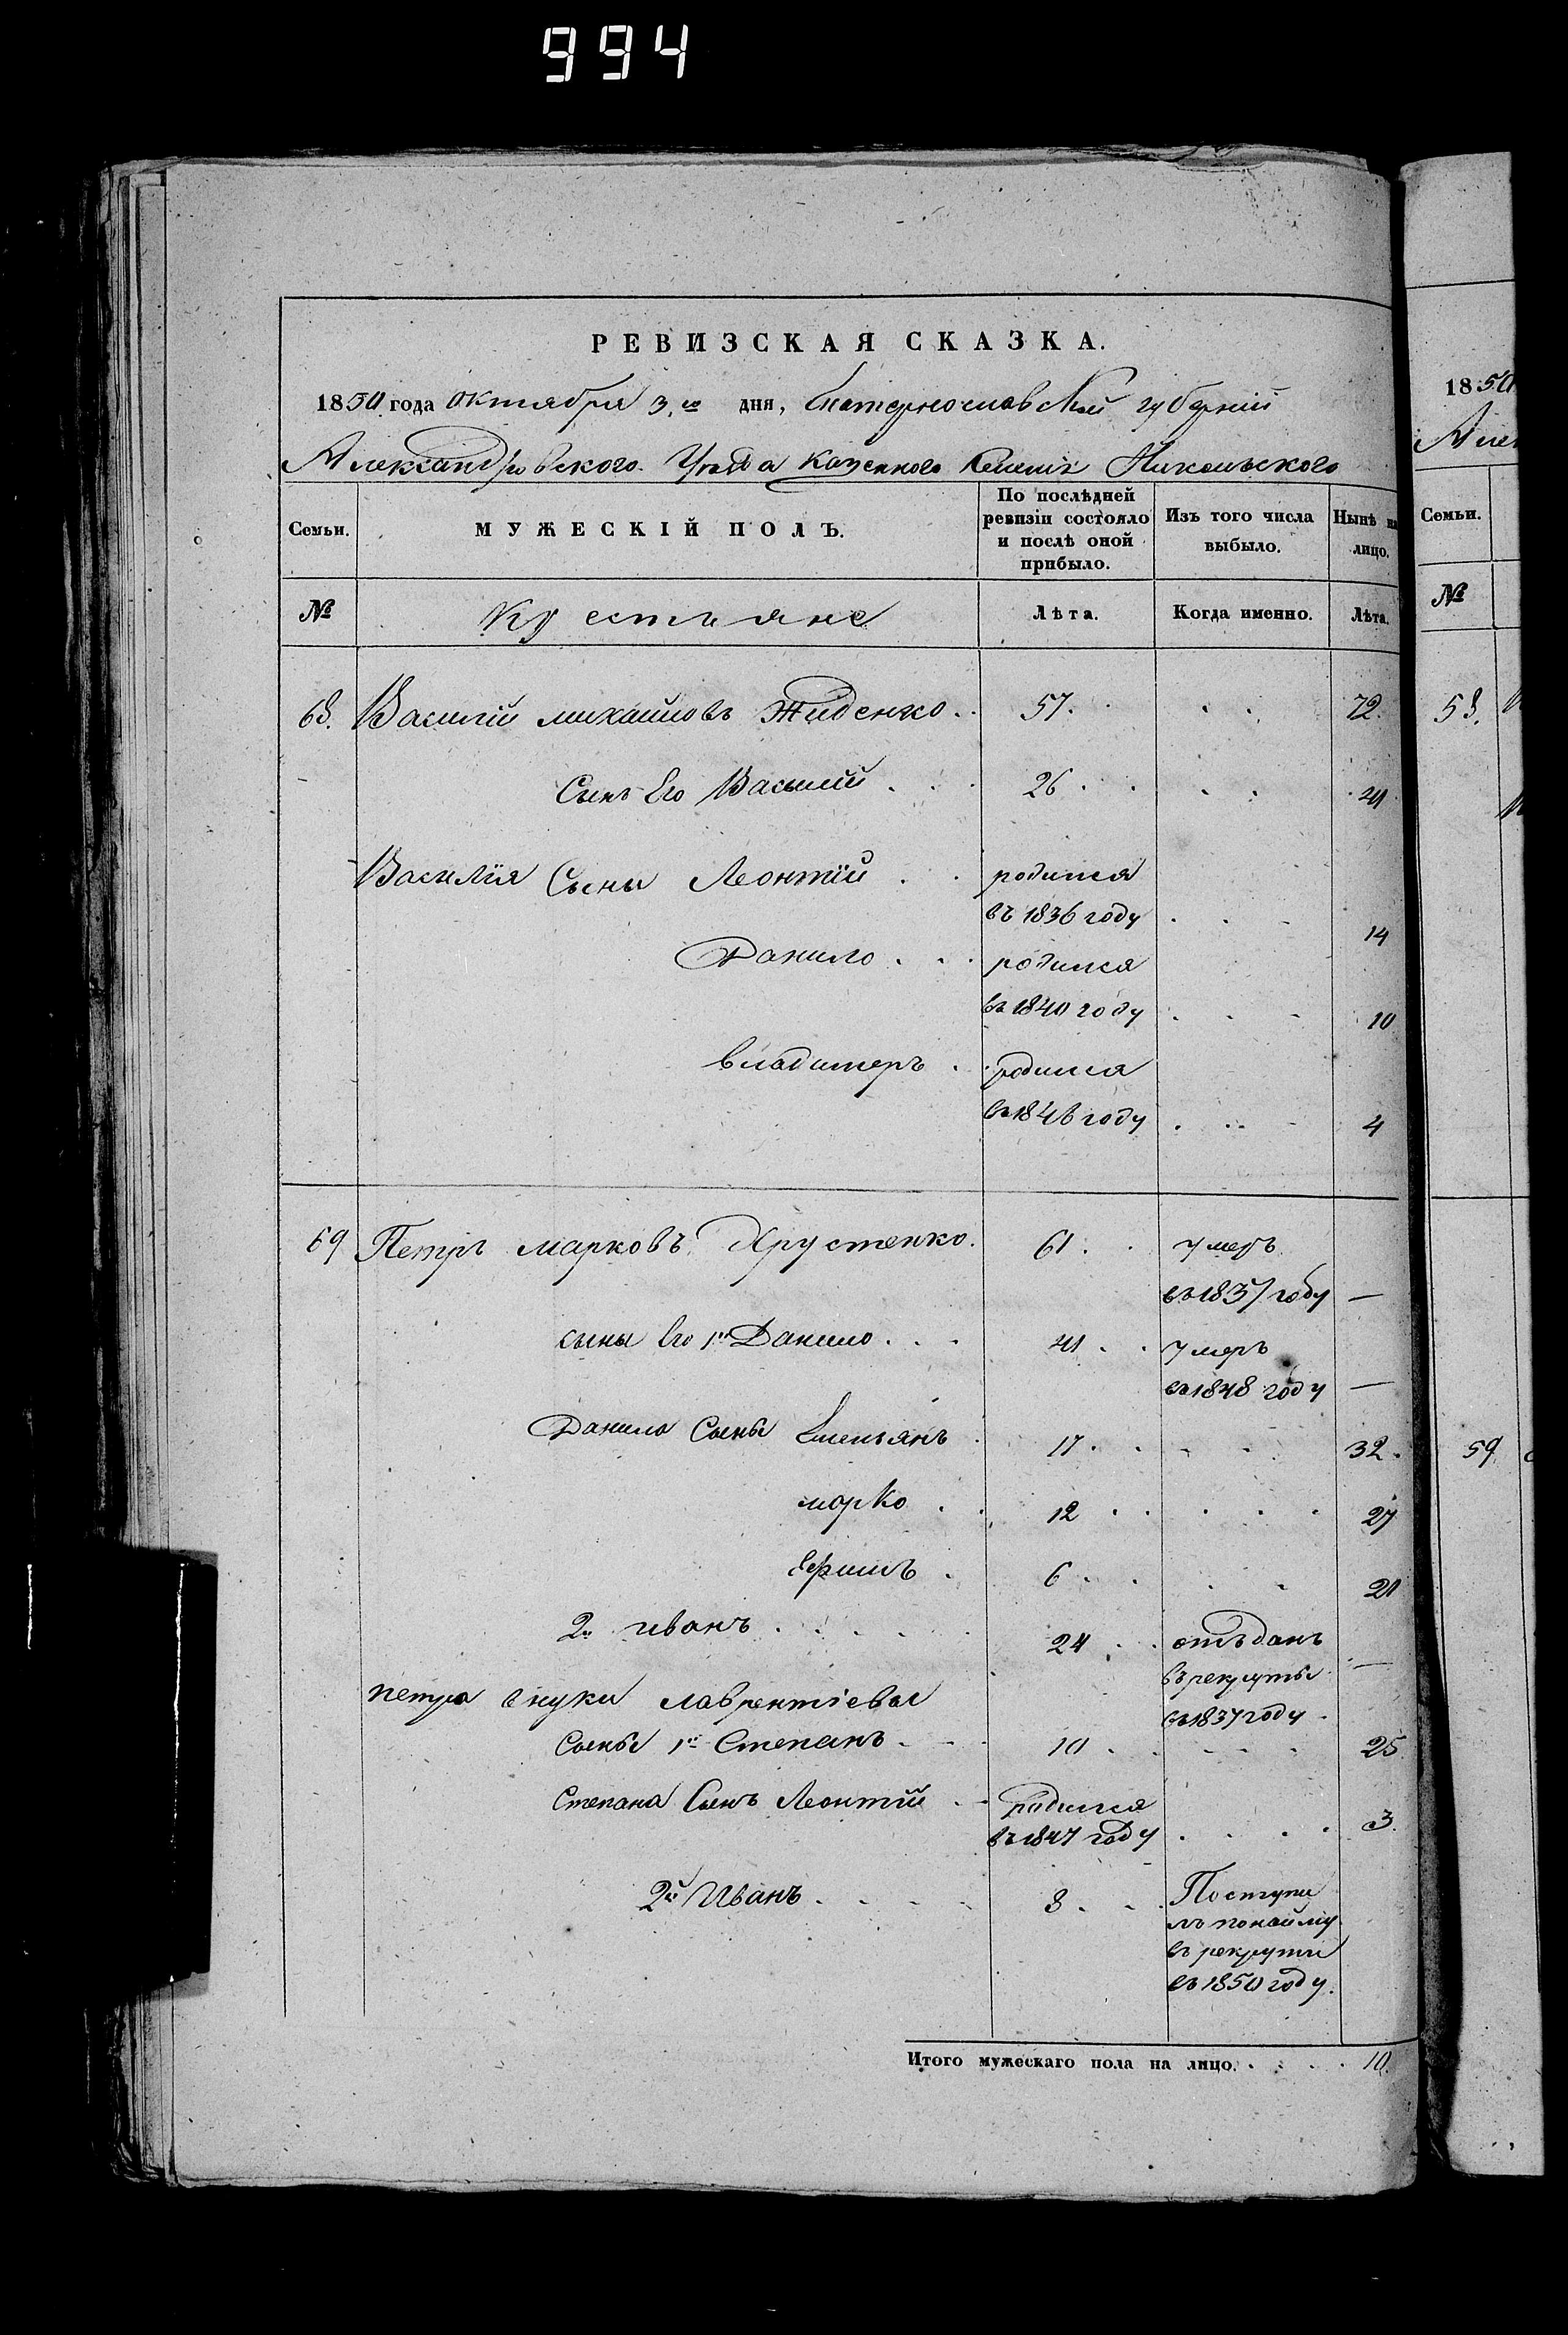 994
РЕВИЗСКАЯ СКАЗКА.
1850 года октября 3.го дня, Екатеринославской губерніи
Александровского Уезда казенного Селенія Никольского
Семьи.
МУЖЕСКІЙ ПОЛЪ.
По послѣдней ревизіи состояло и послѣ оной прибыло.
Изъ того числа выбыло.
Нынѣ на лицо.
№ Крестьяне Лѣта. Когда именно. Лѣта.
68. Василій михайловъ Жиденко. 57. 72.
Сынъ Его Василій 26 41
Василія Сыны Леонтій родился
въ 1836 году 14
Данило родился
въ 1840 году 10
владимеръ родился
въ 1846 году 4
69 Петръ марковъ Хрустенко. 61. умеръ
въ 1837 году —
сыны Его 1й Данило 41 умеръ
въ 1848 году —
Данила Сыны Емельянъ 17. 32.
марко 12 27
Ефимъ 6 21
2й иванъ 24 отъданъ —
въ рекруты
въ 1837 году
петра внуки лаврентіевы
Сыны 1й Степанъ 10 25
Степана Сынъ Леонтій родился
въ 1847 году 3.
2й Иванъ 8 Поступи
лъ по найму
въ рекруты
въ 1850 году.
Итого мужескаго пола на лицо. 10.
1850
Але
Семьи.
№
58.
59